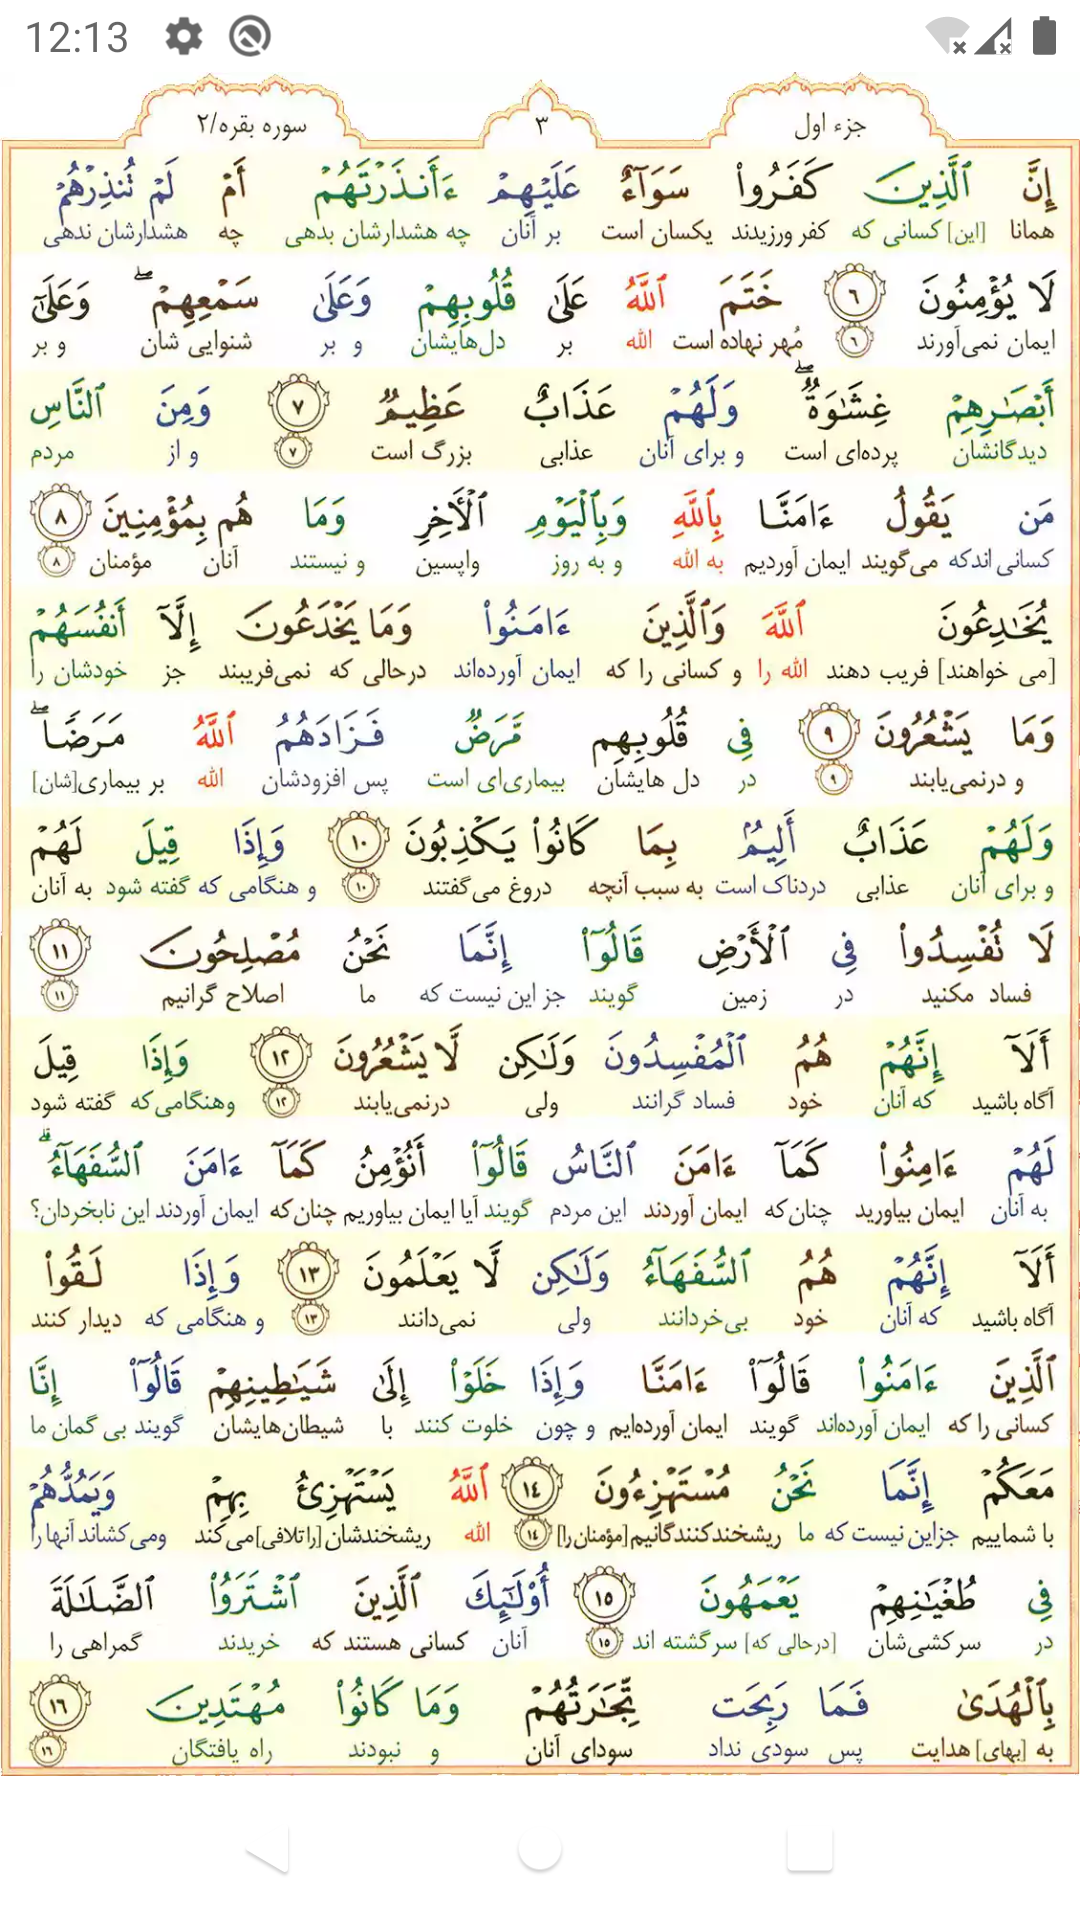 12:13
جزء اول ٣ سوره بقره/٢
إِنَّ ٱلَّذِينَ كَفَرُوا۟ سَوَآءٌ عَلَيْهِمْ ءَأَنذَرْتَهُمْ أَمْ لَمْ تُنذِرْهُمْ
همانا [این] کسانی که کفر ورزیدند یکسان است بر آنان چه هشدارشان بدهی چه هشدارشان ندهی
لَا يُؤْمِنُونَ ٦ خَتَمَ ٱللَّهُ عَلَىٰ قُلُوبِهِمْ وَعَلَىٰ سَمْعِهِمْ ۖ وَعَلَىٰٓ
ایمان نمی‌آورند ٦ مُهر نهاده است الله بر دل‌هایشان و بر شنوایی شان و بر
أَبْصَـٰرِهِمْ غِشَـٰوَةٌ ۖ وَلَهُمْ عَذَابٌ عَظِيمٌ ٧ وَمِنَ ٱلنَّاسِ
دیدگانشان پرده‌ای است و برای آنان عذابی بزرگ است ٧ و از مردم
مَن يَقُولُ ءَامَنَّا بِٱللَّهِ وَبِٱلْيَوْمِ ٱلْـَٔاخِرِ وَمَا هُم بِمُؤْمِنِينَ ٨
کسانی اندکه می‌گویند ایمان آوردیم به الله و به روز واپسین و نیستند آنان مؤمنان ٨
يُخَـٰدِعُونَ ٱللَّهَ وَٱلَّذِينَ ءَامَنُوا۟ وَمَا يَخْدَعُونَ إِلَّآ أَنفُسَهُمْ
[می خواهند] فریب دهند الله را و کسانی را که ایمان آورده‌اند درحالی که نمی‌فریبند جز خودشان را
وَمَا يَشْعُرُونَ ٩ فِى قُلُوبِهِم مَّرَضٌ فَزَادَهُمُ ٱللَّهُ مَرَضًا ۖ
و درنمی‌یابند ٩ در دل هایشان بیماری‌ای است پس افزودشان الله بر بیماری[شان]
وَلَهُمْ عَذَابٌ أَلِيمٌۢ بِمَا كَانُوا۟ يَكْذِبُونَ ١٠ وَإِذَا قِيلَ لَهُمْ
و برای آنان عذابی دردناک است به سبب آنچه دروغ می‌گفتند ١٠ و هنگامی که گفته شود به آنان
لَا تُفْسِدُوا۟ فِى ٱلْأَرْضِ قَالُوٓا۟ إِنَّمَا نَحْنُ مُصْلِحُونَ ١١
فساد مکنید در زمین گویند جز این نیست که ما اصلاح گرانیم ١١
أَلَآ إِنَّهُمْ هُمُ ٱلْمُفْسِدُونَ وَلَـٰكِن لَّا يَشْعُرُونَ ١٢ وَإِذَا قِيلَ
آگاه باشید که آنان خود فساد گرانند ولی درنمی‌یابند ١٢ وهنگامی‌که گفته شود
لَهُمْ ءَامِنُوا۟ كَمَآ ءَامَنَ ٱلنَّاسُ قَالُوٓا۟ أَنُؤْمِنُ كَمَآ ءَامَنَ ٱلسُّفَهَآءُ ۗ
به آنان ایمان بیاورید چنان‌که ایمان آوردند این مردم گویند آیا ایمان بیاوریم چنان‌که ایمان آوردند این نابخردان؟
أَلَآ إِنَّهُمْ هُمُ ٱلسُّفَهَآءُ وَلَـٰكِن لَّا يَعْلَمُونَ ١٣ وَإِذَا لَقُوا۟
آگاه باشید که آنان خود بی‌خردانند ولی نمی‌دانند ١٣ و هنگامی که دیدار کنند
ٱلَّذِينَ ءَامَنُوا۟ قَالُوٓا۟ ءَامَنَّا وَإِذَا خَلَوْا۟ إِلَىٰ شَيَـٰطِينِهِمْ قَالُوٓا۟ إِنَّا
کسانی را که ایمان آورده‌اند گویند ایمان آورده‌ایم و چون خلوت کنند با شیطان‌هایشان گویند بی گمان ما
مَعَكُمْ إِنَّمَا نَحْنُ مُسْتَهْزِءُونَ ١٤ ٱللَّهُ يَسْتَهْزِئُ بِهِمْ وَيَمُدُّهُمْ
با شماییم جزاین نیست که ما ریشخندکنندگانیم[مؤمنان را] ١٤ الله ریشخندشان [را تلافی] می‌کند ومی‌کشاند آنها را
فِى طُغْيَـٰنِهِمْ يَعْمَهُونَ ١٥ أُو۟لَـٰٓئِكَ ٱلَّذِينَ ٱشْتَرَوُا۟ ٱلضَّلَـٰلَةَ
در سرکشی‌شان [درحالی که] سرگشته اند ١٥ آنان کسانی هستند که خریدند گمراهی را
بِٱلْهُدَىٰ فَمَا رَبِحَت تِّجَـٰرَتُهُمْ وَمَا كَانُوا۟ مُهْتَدِينَ ١٦
به [بهای] هدایت پس سودی نداد سودای آنان و نبودند راه یافتگان ١٦